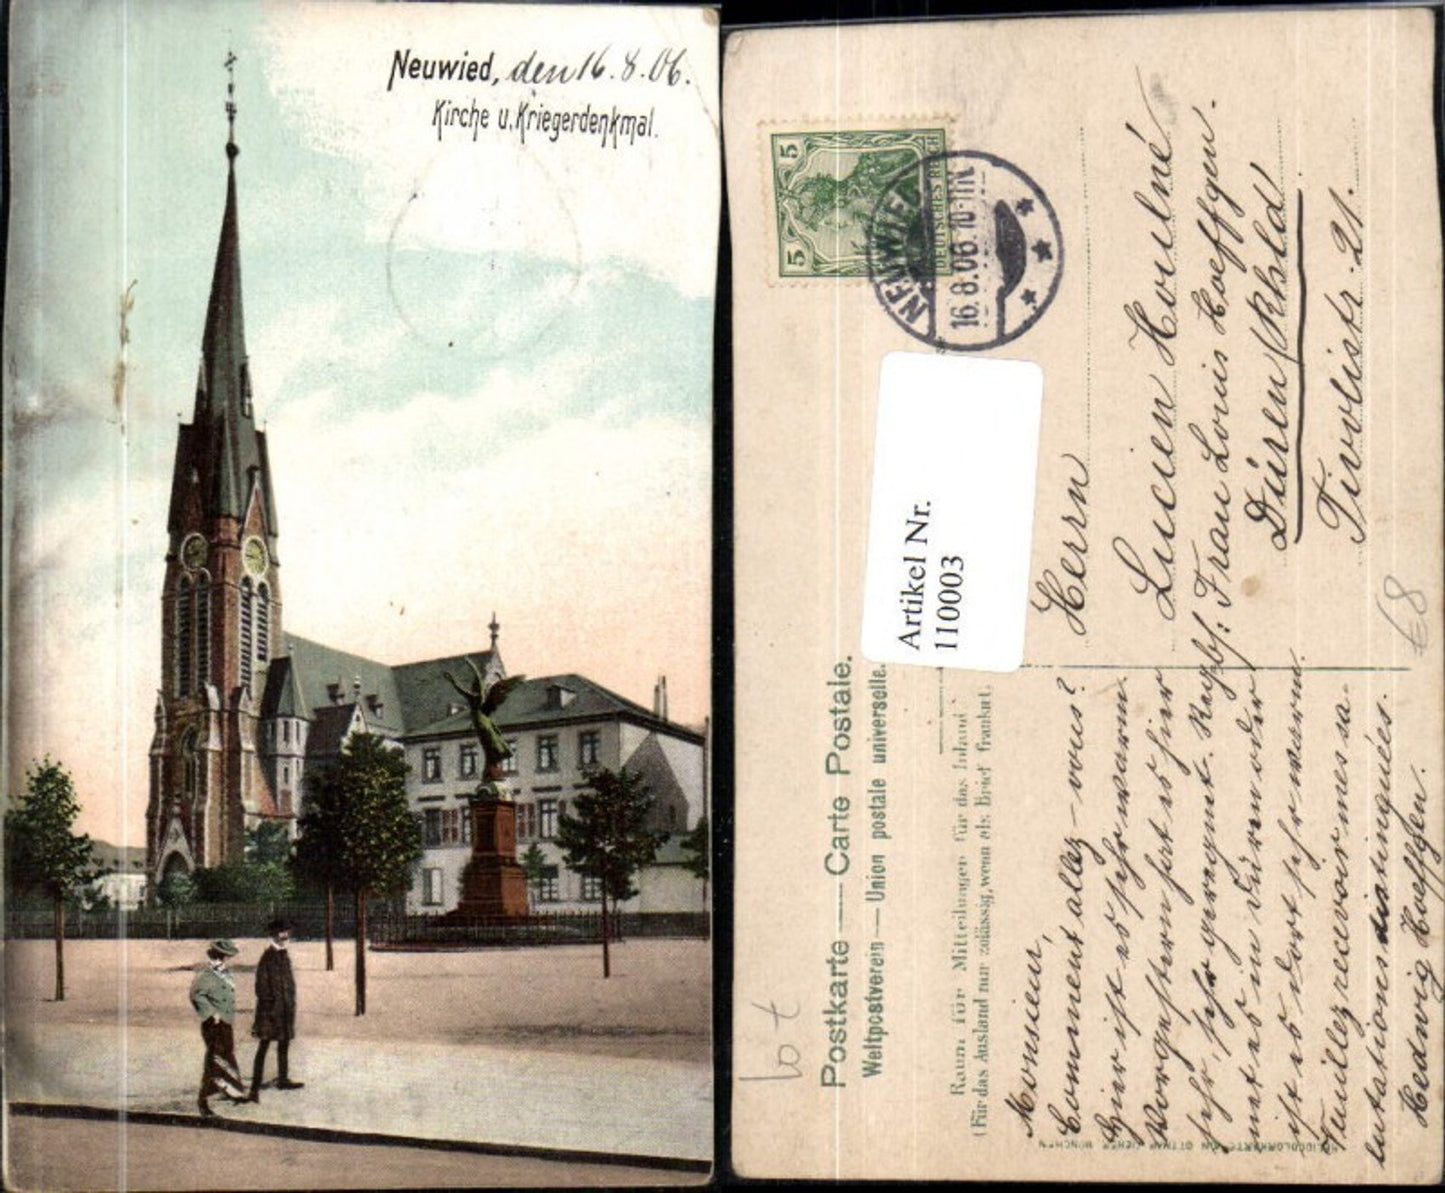 Neuwied, den 16.8.06.
Kirche u. Kriegerdenkmal.
5
5
DEUTSCHES REICH
NEUWIED
16.8.06.10-11N
Artikel Nr.
110003
Postkarte — Carte Postale.
Weltpostverein — Union postale universelle.
Raum für Mitteilungen für das Inland
(Für das Ausland nur zulässig, wenn als Brief frankirt.
Herrn
Lucien
Frau Louis Hoeffgen.
Düren/Rhld
Tivolistr. 21.
Monsieur,
Comment allez-vous?
Hier ist es sehr warm.
Vorgestern hat es hier
sehr, sehr geregnet.
es in Düren oder
ist es dort sehr warm.
Veuillez recevoir mes sa-
lutations distinguées.
Hedwig Hoeffgen.
lot
€8
MÜNCHEN